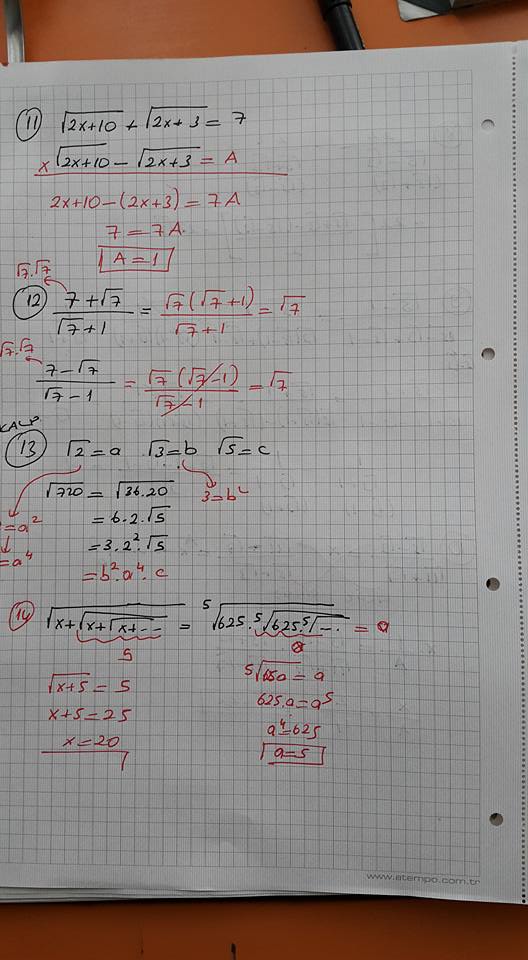 11 √(2x+10) + √(2x+3) = 7
x √(2x+10) − √(2x+3) = A
2x+10−(2x+3) = 7A
7 = 7A
A = 1
√7.√7
12 (7+√7)/(√7+1) = (√7(√7+1))/(√7+1) = √7
√7.√7
(7−√7)/(√7−1) = (√7(√7−1))/(√7−1) = √7
KALP
13 √2 = a √3 = b √5 = c
√720 = √(36.20) 3=b²
=a² = 6.2.√5
= 3.2².√5
=a⁴ = b².a⁴.c
14 √(x+√(x+√(x+--- = ⁵√(625.⁵√(625.⁵√--- = a
5 a
√(x+5) = 5 ⁵√(65a) = a
x+5 = 25 625.a = a⁵
x = 20 a⁴=625
a=5
www.atempo.com.tr